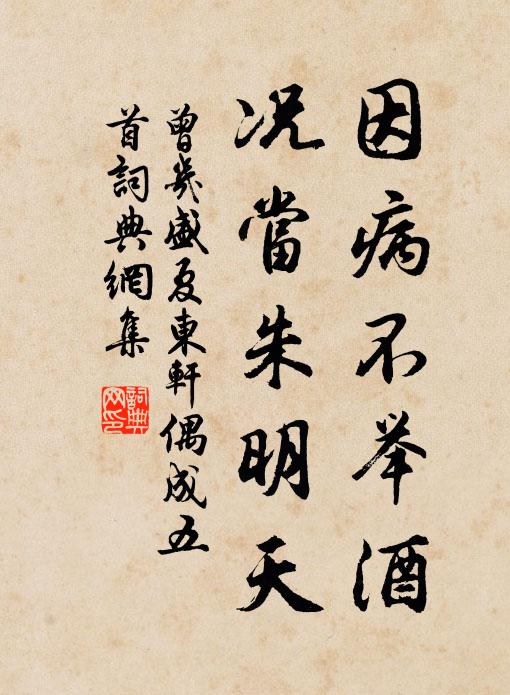 因病不举酒
况當朱明天
曾幾盛夏東軒偶成五
首詞典網集
詞典网印